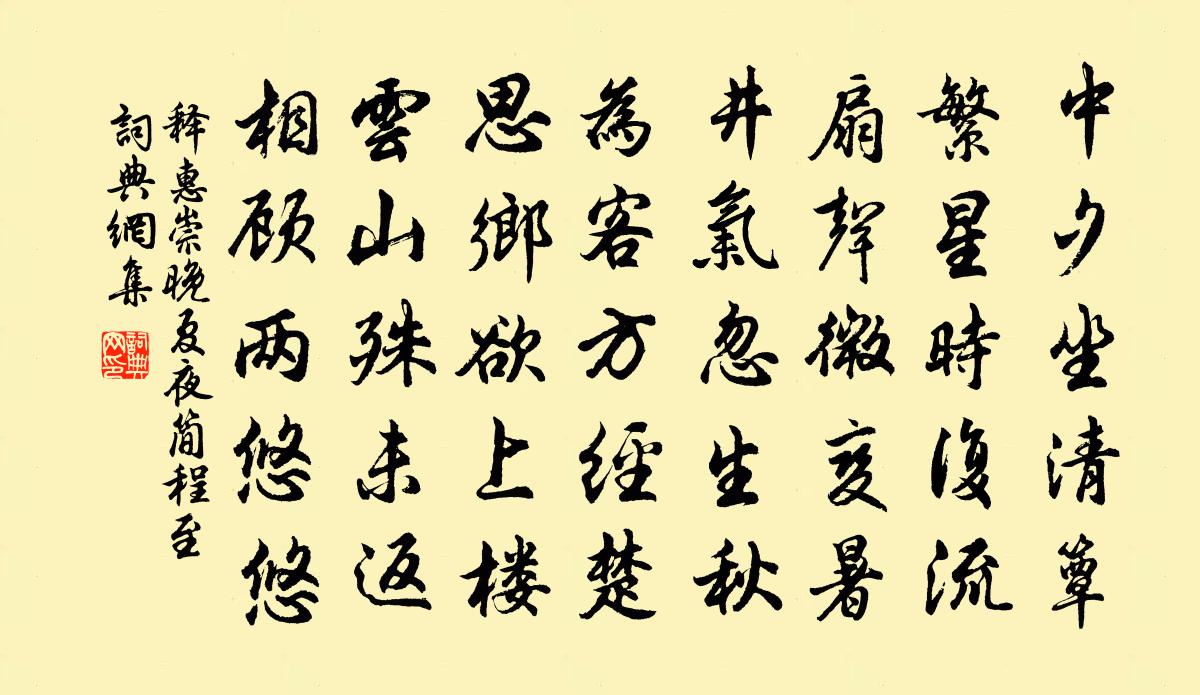 中夕坐清簟
繁星時復流
扇聲微变暑
井氣忽生秋
為客方經楚
思鄉欲上楼
雲山殊未返
相顾两悠悠
释惠崇晚夏夜简程至
詞典網集
詞典网印